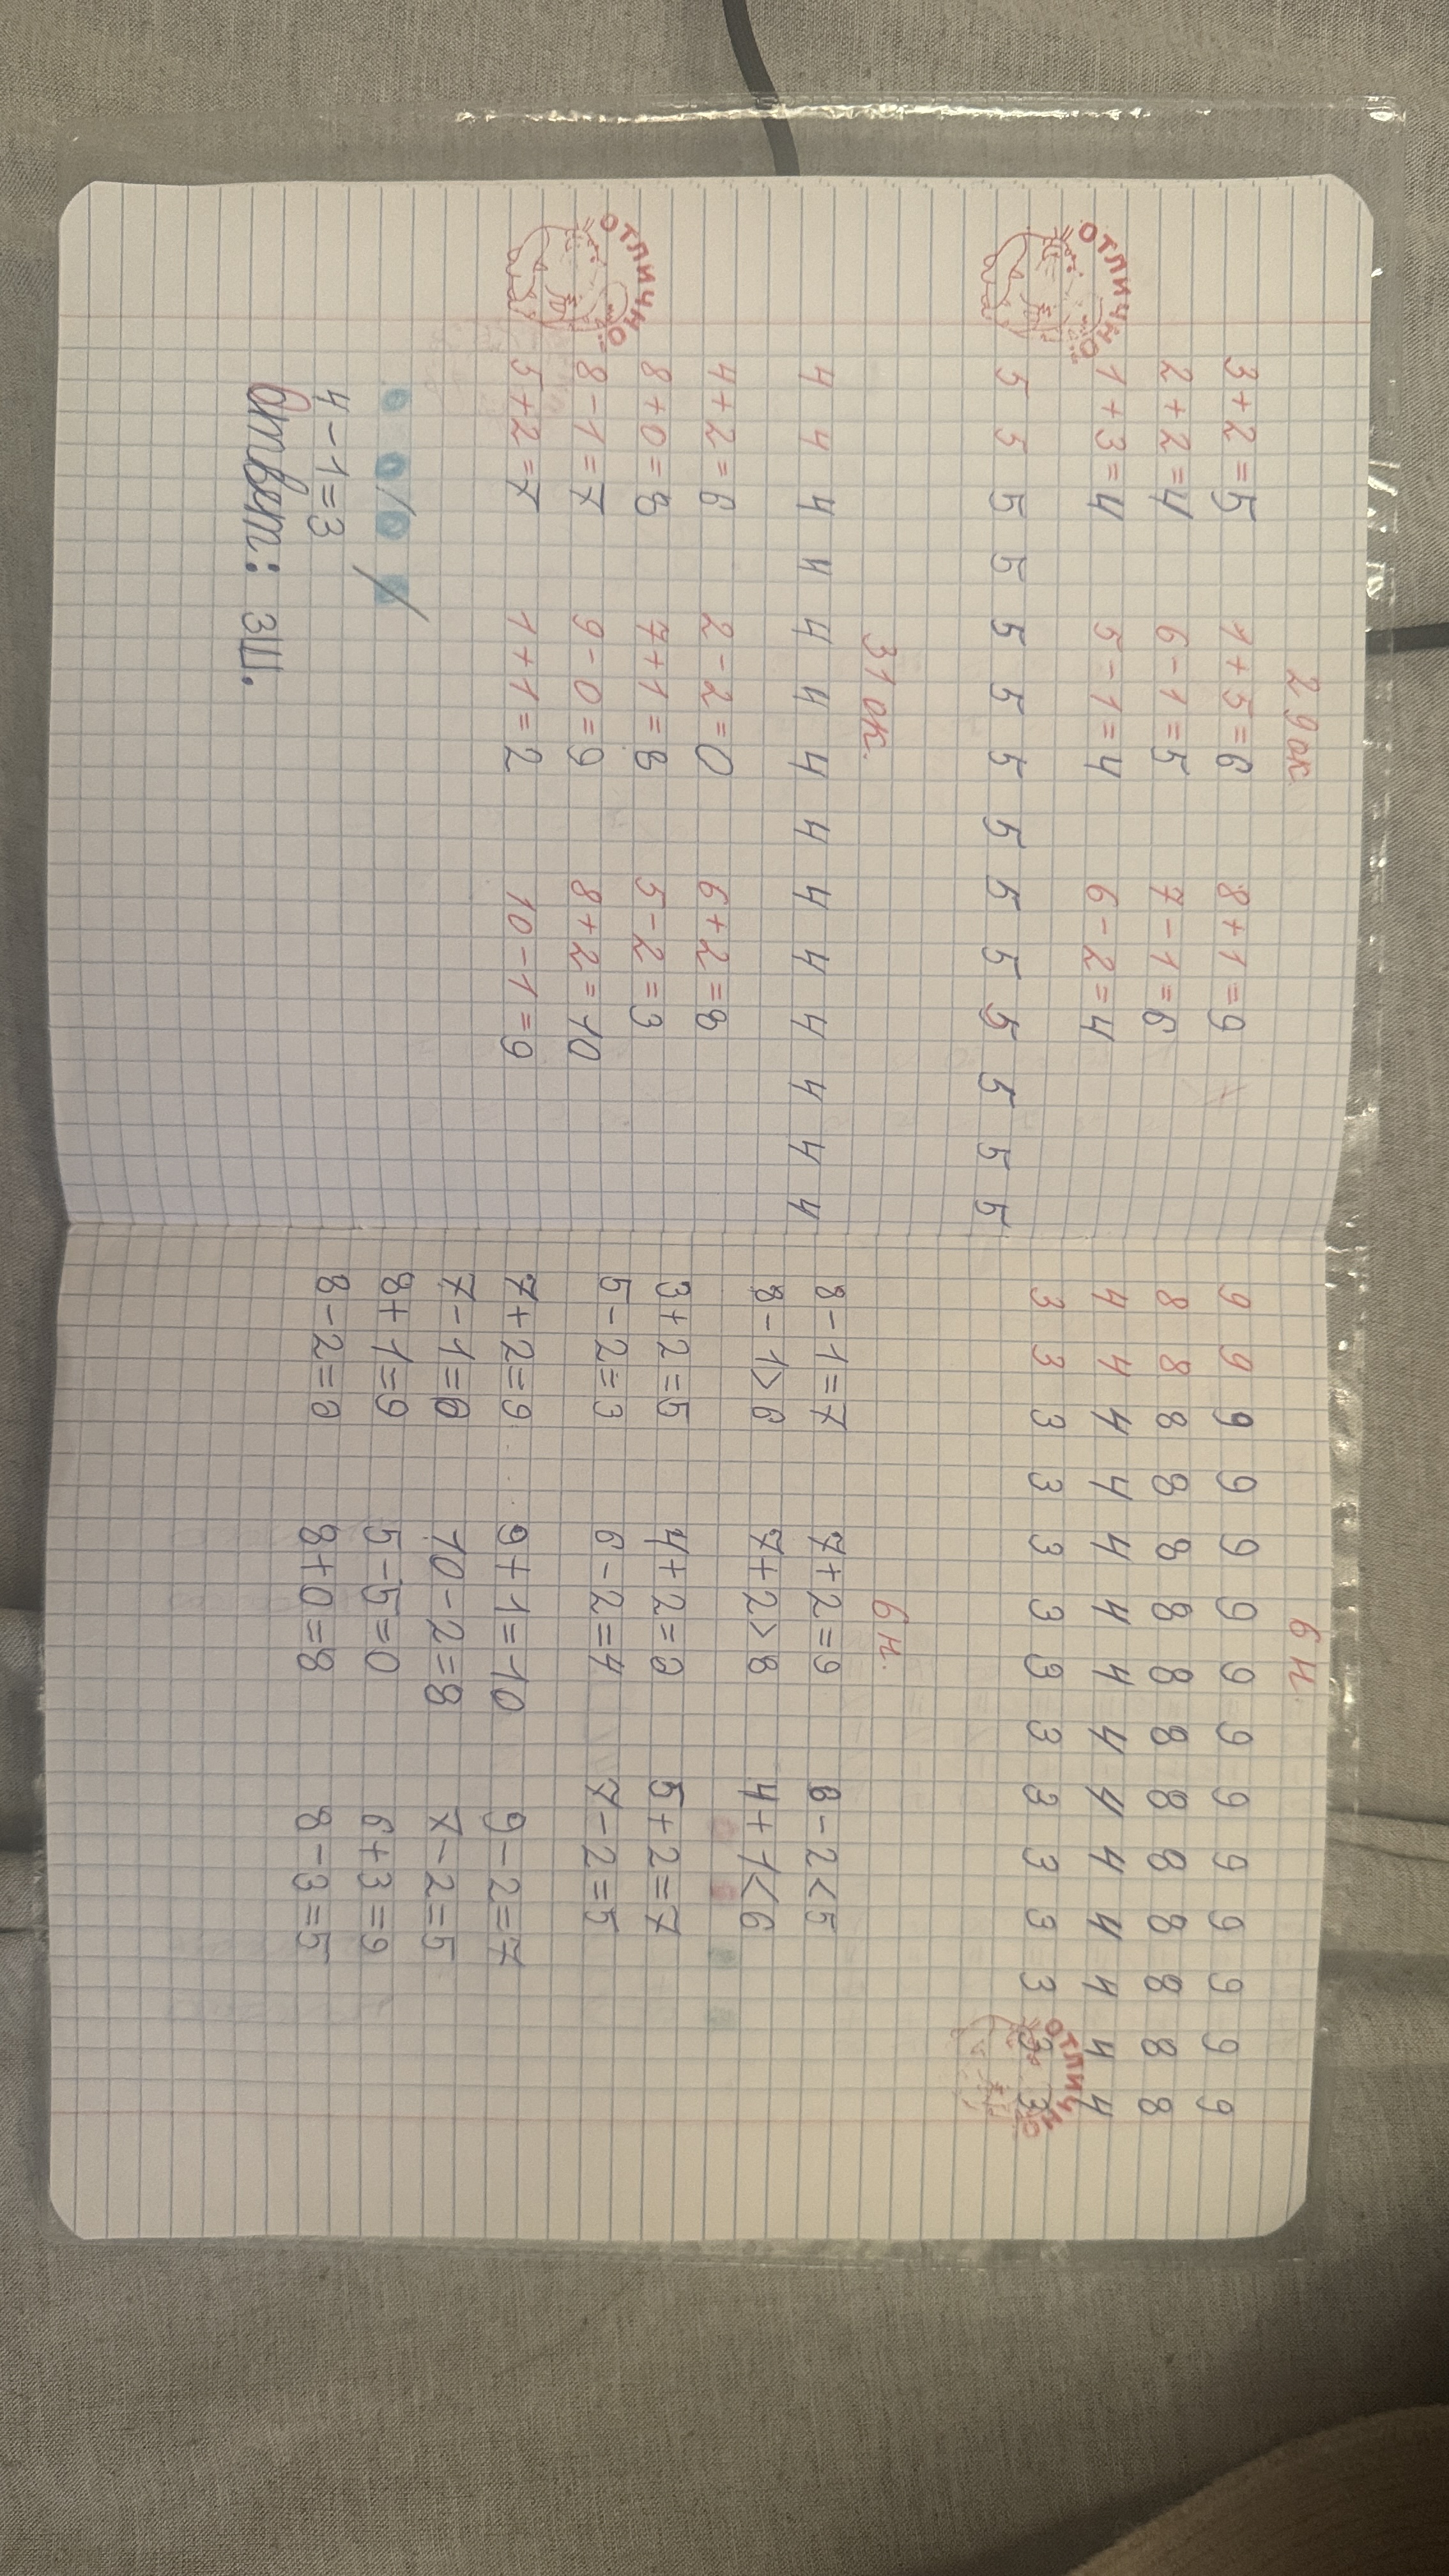 29 ок.
3+2=5 1+5=6 8+1=9
2+2=4 6-1=5 7-1=6
1+3=4 5-1=4 6-2=4
ОТЛИЧНО
5 5 5 5 5 5 5 5 5 5 5 5 5 5
31 ок.
4 4 4 4 4 4 4 4 4 4 4 4 4 4
4+2=6 2-2=0 6+2=8
8+0=8 7+1=8 5-2=3
8-1=7 9-0=9 8+2=10
5+2=7 1+1=2 10-1=9
ОТЛИЧНО
4-1=3
Ответ: 3ш.
6 н.
9 9 9 9 9 9 9 9 9 9 9 9 9 9
8 8 8 8 8 8 8 8 8 8 8 8 8 8
4 4 4 4 4 4 4 4 4 4 4 4 4 4
3 3 3 3 3 3 3 3 3 3 3 3 3 3
ОТЛИЧНО
6 н.
8-1=7 7+2=9 6-2<5
8-1>6 7+2>8 4+1<6
3+2=5 4+2=6 5+2=7
5-2=3 6-2=4 7-2=5
7+2=9 9+1=10 9-2=7
7-1=6 10-2=8 7-2=5
8+1=9 5-5=0 6+3=9
8-2=6 8+0=8 8-3=5